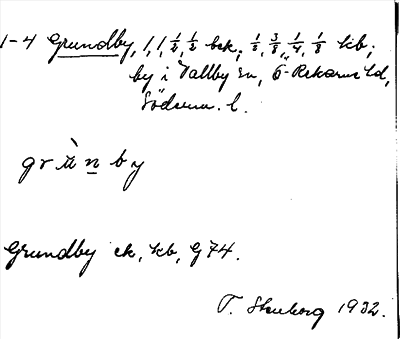 1-4 Grundby, 1, 1, 1/2, 1/2 bck; 1/8, 3/8, 1/4, 1/8 kb;
by i Vallby sn, Ö-Rekarne hd,
Söderm. l.
grùn̲by
Grundby ek, kb, G74.
T. Stenborg 1932.